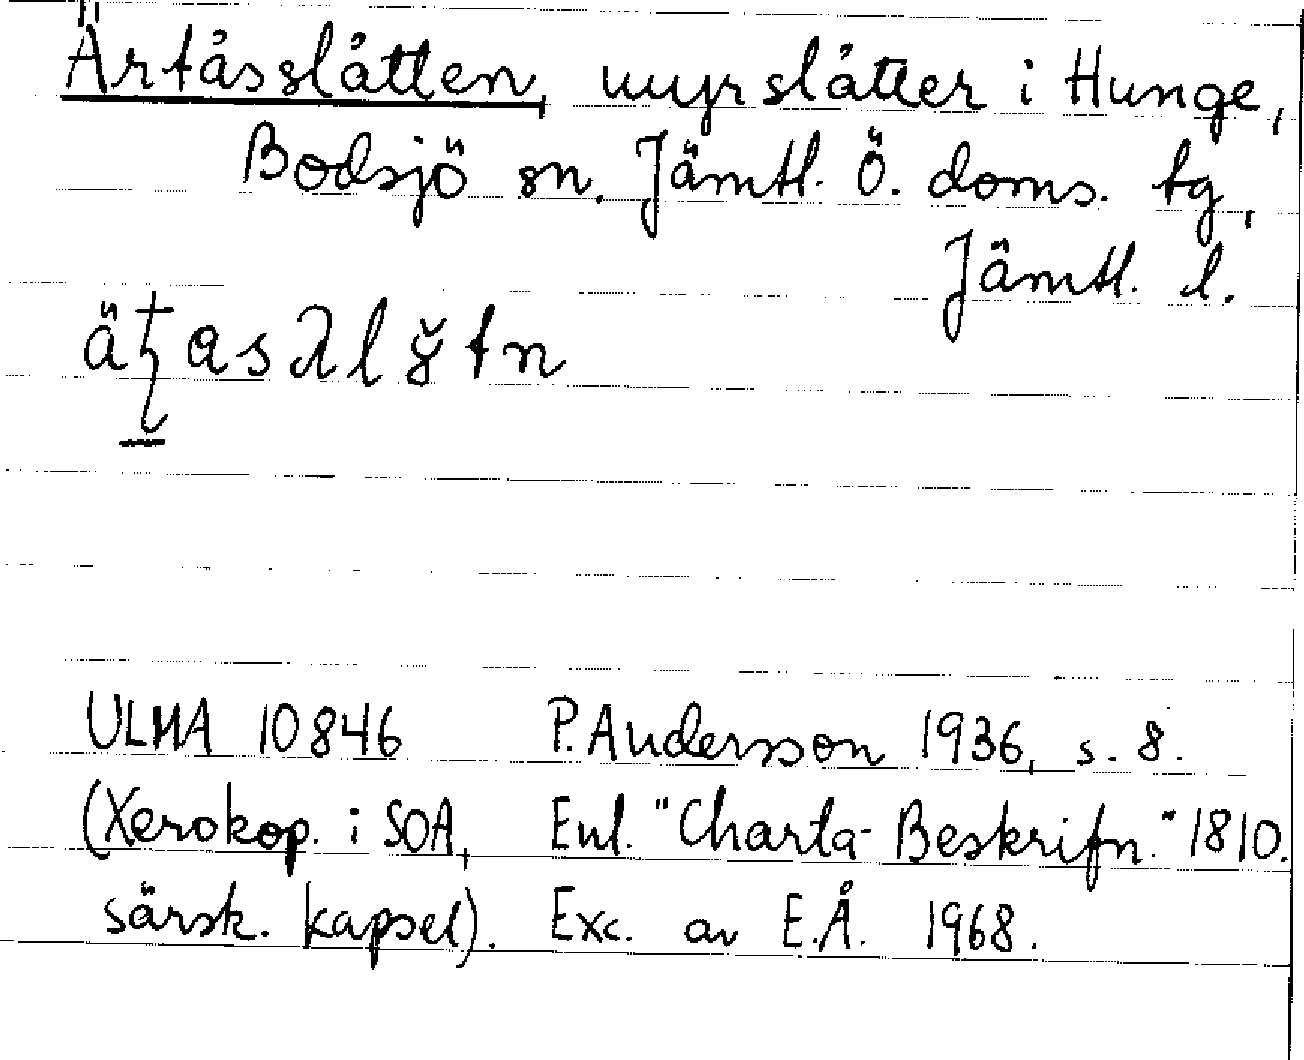 Ärtåsslåtten, myrslåtter i Hunge,
Bodsjö sn. Jämtl. Ö. doms. tg,
Jämtl. l.
ULMA 10846 P. Andersson 1936, s. 8.
(Xerokop. i SOA, Enl. "Charta-Beskrifn." 1810.
särsk. kapsel). Exc. av E.Å. 1968.